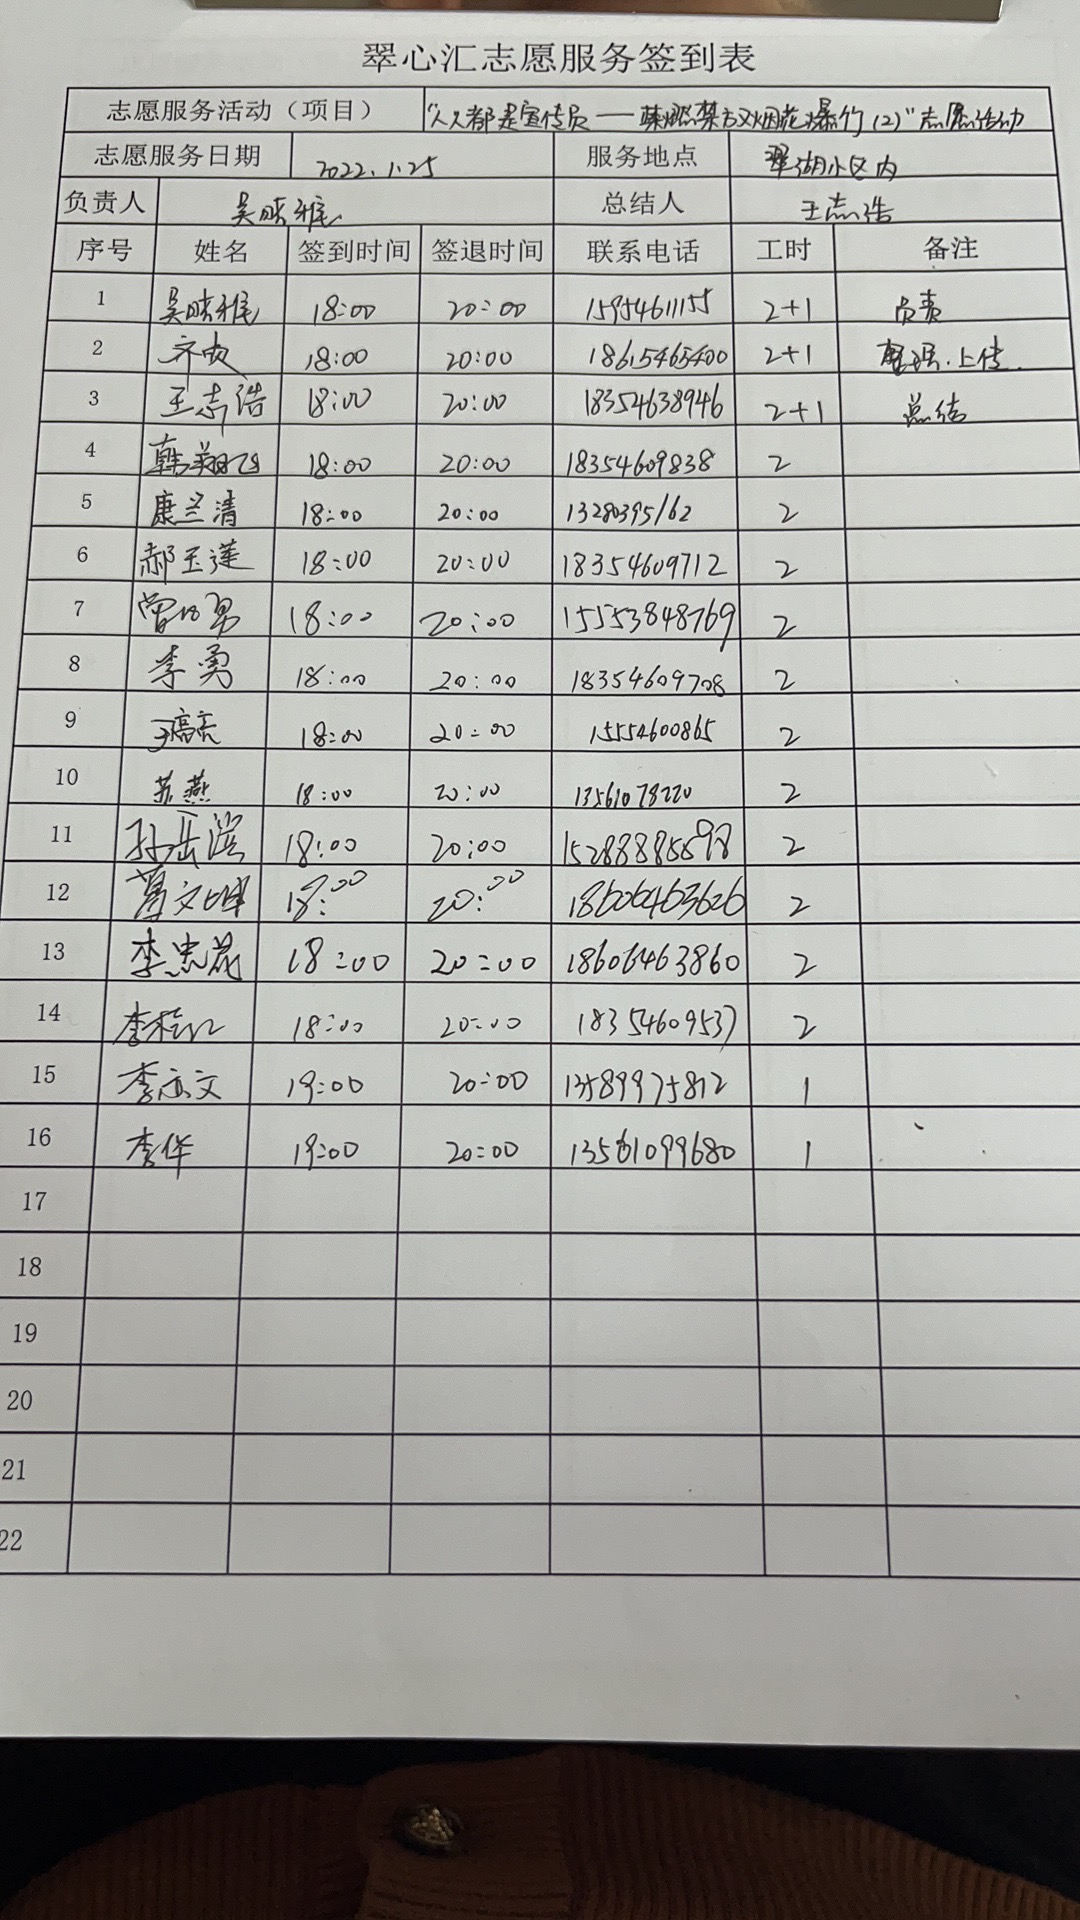 翠心汇志愿服务签到表
志愿服务活动（项目） “人人都是宣传员——禁燃禁放烟花爆竹(2)”志愿活动
志愿服务日期 2022.1.25 服务地点 翠湖小区内
负责人 吴晓雅 总结人 王志浩
序号 姓名 签到时间 签退时间 联系电话 工时 备注
1 吴晓雅 18:00 20:00 15954611155 2+1 负责
2 齐 18:00 20:00 18615465400 2+1 整理.上传.
3 王志浩 18:00 20:00 18354638946 2+1 总结
4 韩翔飞 18:00 20:00 18354609838 2
5 康兰清 18:00 20:00 13280395162 2
6 郝玉莲 18:00 20:00 18354609712 2
7 曾 勇 18:00 20:00 15553848769 2
8 李勇 18:00 20:00 18354609708 2
9 高亮 18:00 20:00 15554600865 2
10 苏燕 18:00 20:00 13561078220 2
11 孙岳滨 18:00 20:00 2
12 文坤 18:00 20:00 18606463626 2
13 李忠花 18:00 20:00 18606463860 2
14 李桂江 18:00 20:00 18354609537 2
15 李 文 19:00 20:00 13589975812 1
16 李华 19:00 20:00 13561099680 1
17
18
19
20
21
22